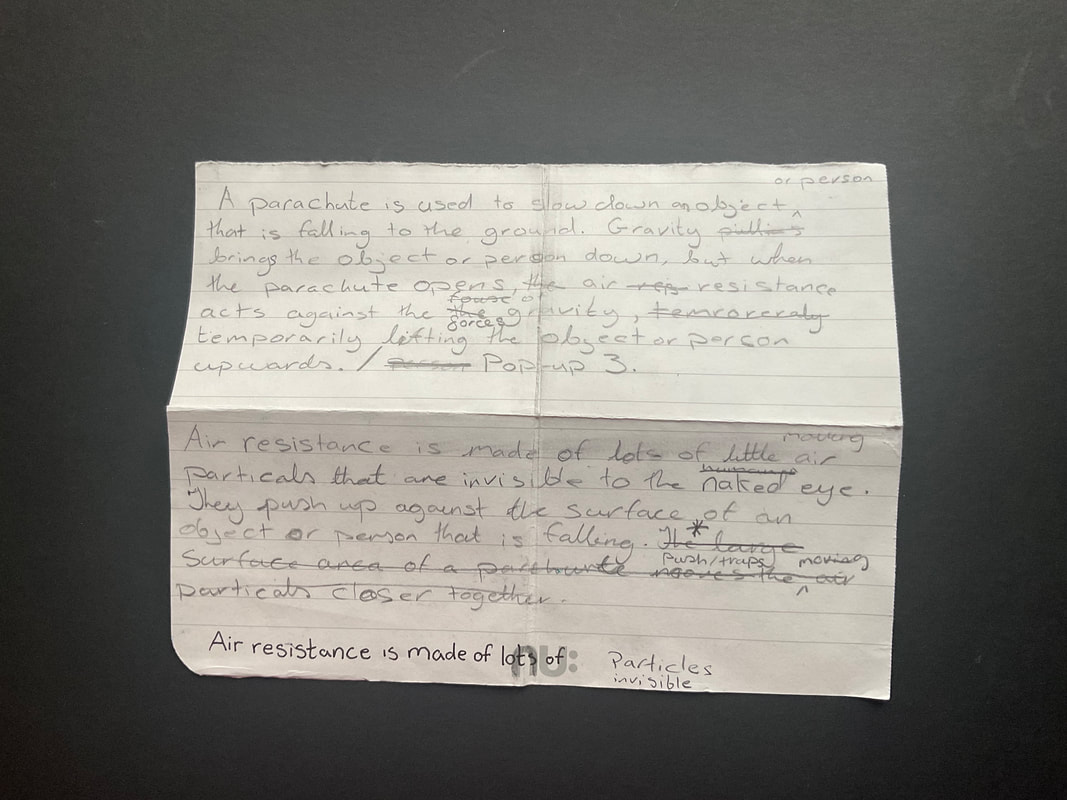 or person
A parachute is used to slow down an object
that is falling to the ground. Gravity pullies
brings the object or person down, but when
the parachute opens, the air res resistance
fause of
acts against the the gravity, temroreraly
forces
temporarily lifting the object or person
upwards. / person Pop-up 3.
moving
Air resistance is made of lots of little air
particals that are invisible to the naked eye.
They push up against the surface of an
object or person that is falling. * The large
push/traps moving
surface area of a parchourte the air
particals closer together.
Air resistance is made of lots of: Particles
invisible
nu: